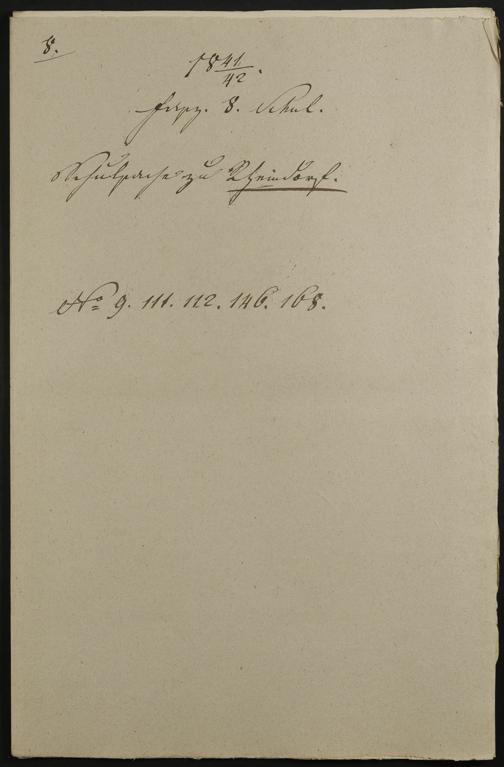 8.
18 41/42.
Fasz. 8. Schul.
Schulsache zu Rheindorf.
No 9. 111. 112. 146. 168.